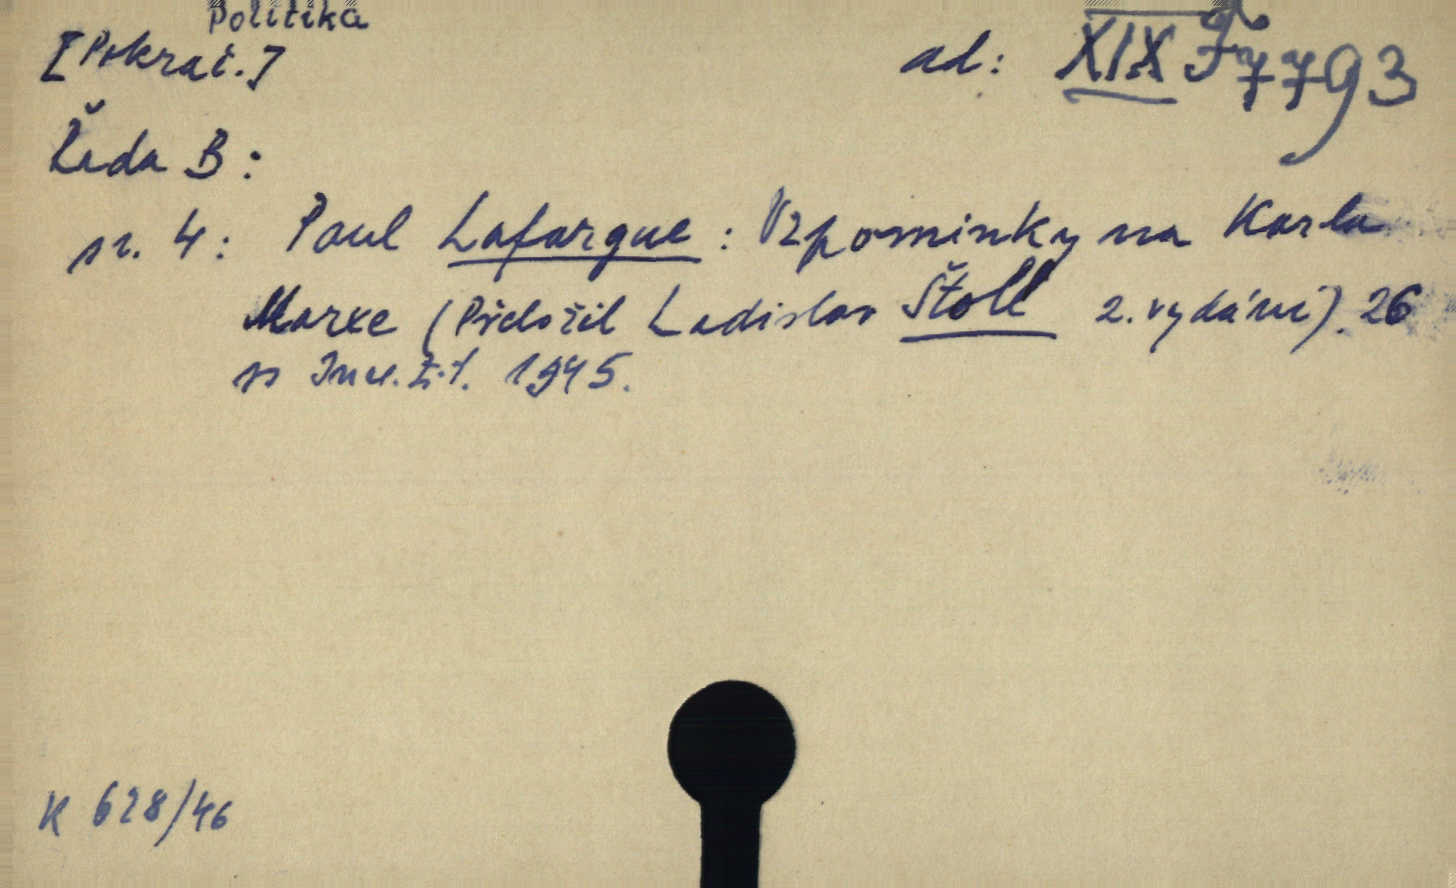 Politika
[Pokrač.] ad: XIX F 7793
Řada B:
sv. 4: Paul Lafargue: Vzpomínky na Karla
Marxe (Přeložil Ladislav Štoll 2. vydání). 26
ss 1945.
K 628/46